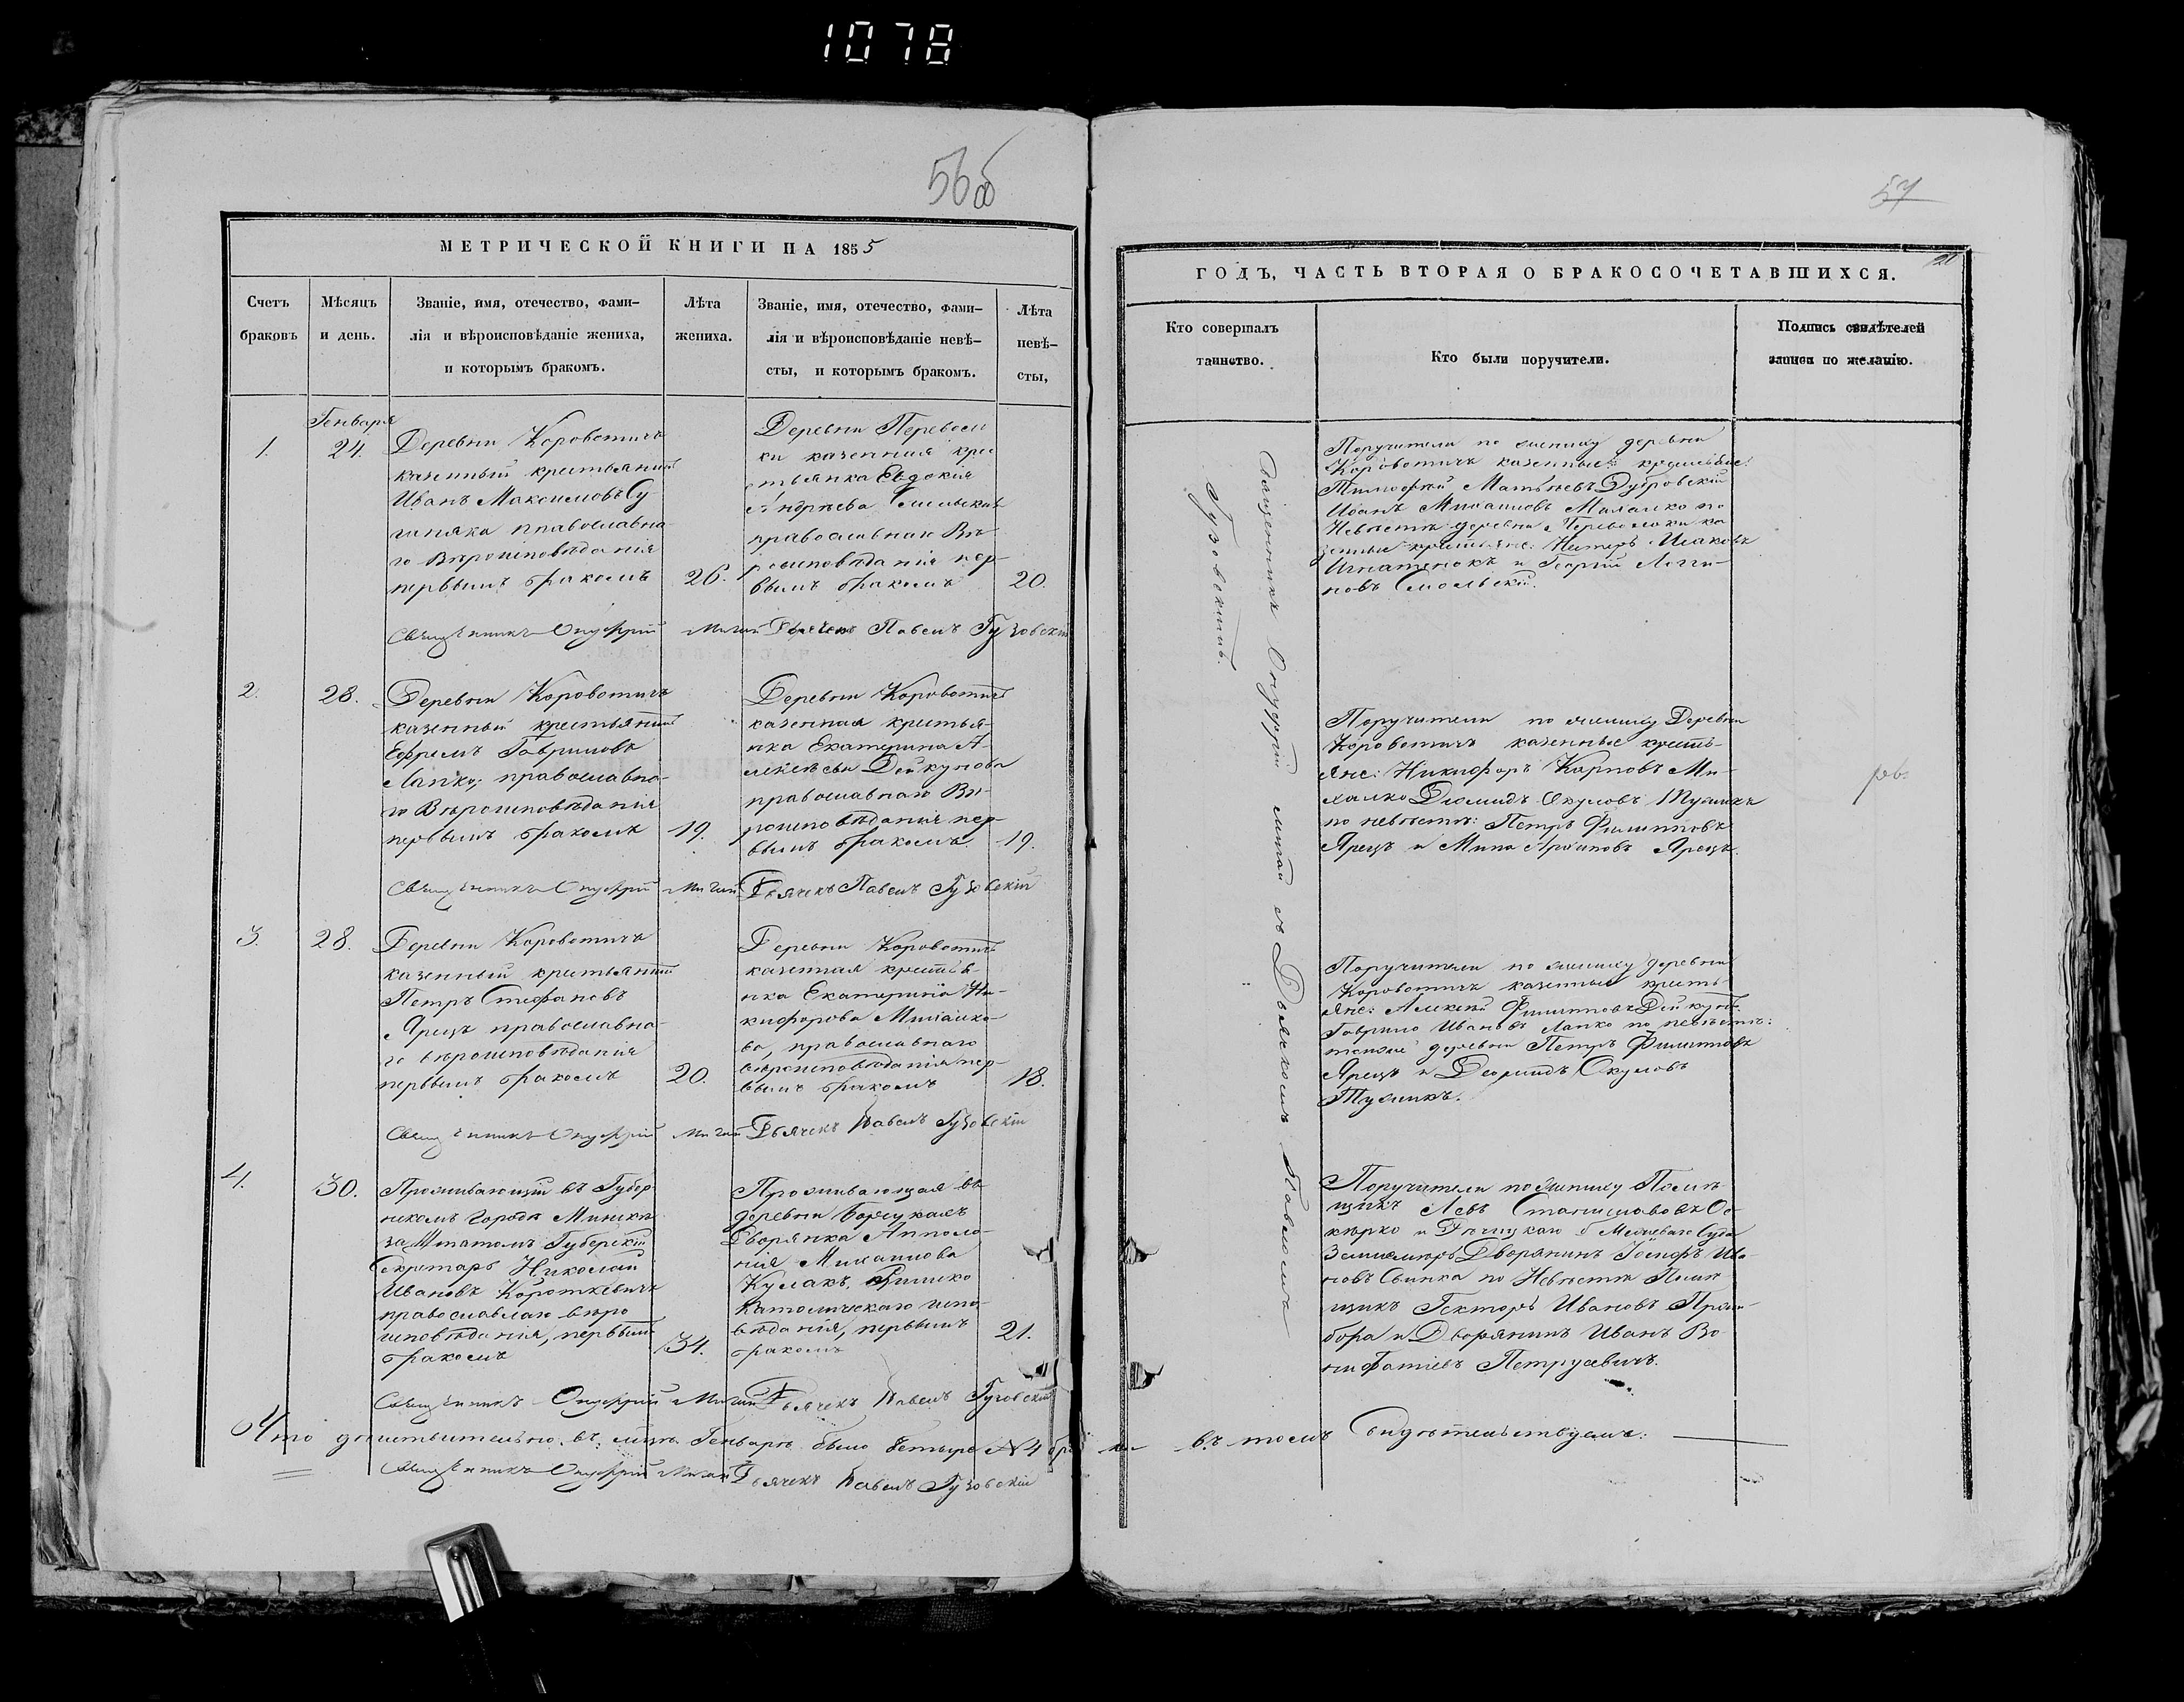 1078
56об
57
МЕТРИЧЕСКОЙ КНИГИ НА 1855
Счетъ браковъ
Мѣсяцъ и день.
Званіе, имя, отечество, фами-
лія и вѣроисповѣданіе жениха,
и которымъ бракомъ.
Лѣта жениха.
Званіе, имя, отечество, фами-
лія и вѣроисповѣданіе невѣ-
сты, и которымъ бракомъ.
Лѣта невѣ-
сты,
1.
Генваря
24.
Деревни Коровотичъ
казенный крестьянинъ
Иванъ Максимовъ Су
православна
го Вѣроисповѣданія
первымъ бракомъ
26.
Деревни Переволо
ки казенная кре
стьянка Евдокія
Андрѣева
православнаго Вѣ
роисповѣданія пер
вымъ бракомъ
20.
Священникъ Онуфрій Мигай Дьячекъ Павелъ Гузовскій
2.
28.
Деревни Коровотичъ
казенный крестьянинъ
Ефремъ Гавриловъ
Лапко, православна-
го Вѣроисповѣданія
первымъ бракомъ
19.
Деревни Коровотичъ
казенная крестья-
нка Екатерина А-
лексѣева Дейкунова
православнаго Вѣ-
роисповѣданія пер-
вымъ бракомъ
19.
Священникъ Онуфрій Мигай Дьячекъ Павелъ Гузовскій
3.
28.
Деревни Коровотичъ
казенный крестьянинъ
Петръ Стефановъ
Ярецъ православна-
го вѣроисповѣданія
первымъ бракомъ
20.
Деревни Коровотичъ
казенная крестья-
нка Екатерина Ни-
кифорова Михалко-
ва, православнаго
вѣроисповѣданія пер-
вымъ бракомъ
18.
Священникъ Онуфрій Мигай Дьячекъ Павелъ Гузовскій
4.
30.
Проживающій въ Губер
нскомъ городѣ Минскѣ
за Штатомъ Губернскій
Секретарь Николай
Ивановъ Короткевичъ
православнаго вѣро
исповѣданія, первымъ
бракомъ
34.
Проживающая въ
деревни
Дворянка Апполо-
нія Михаилова
Кулакъ, Римско
Католическаго испо-
вѣданія, первымъ
бракомъ
21.
Священникъ Онуфрій Мигай Дьячекъ Павелъ Гузовскій
Что дѣйствительно въ мцѣ Генварѣ было Четыре № 4 бра ка въ томъ свидѣтельствуемъ:
Священникъ Онуфрій Мигай Дьячекъ Павелъ Гузовскій
ГОДЪ, ЧАСТЬ ВТОРАЯ О БРАКОСОЧЕТАВШИХСЯ.
Кто совершалъ таинство.
Кто были поручители.
Подпись свидѣтелей
записи по желанію.
Священникъ Онуфрій Мигай съ Дьячкомъ Павломъ
Гузовскимъ.
Поручители по жениху деревни
Коровотичъ казенные крестьяне:
Тимофей Матвѣевъ Дубровскій
Иванъ Михаиловъ Михалко по
Невѣстѣ деревни Переволоки ка
зенные крестьяне: Исаковъ
Игнатенокъ и Георгій Логи-
новъ Смольскій.
Поручители по жениху Деревни
Коровотичъ казенные кресть-
яне: Никифоръ Карповъ Ми-
халко Диомидъ Окуловъ Тужикъ
по невѣстѣ: Петръ Филипповъ
Ярецъ и Мина Архиповъ Ярецъ.
Поручители по жениху деревни
Коровотичъ казенные кресть-
яне: Алексѣй Филипповъ Дейкунъ
Гаврило Ивановъ Лапко по невѣстѣ:
тойже деревни Петръ Филипповъ
Ярецъ и Диомидъ Окуловъ
Тужикъ.
Поручители по жениху Помѣ-
щикъ Левъ Станиславовъ Ос-
кѣрко и Рѣчицкаго Межеваго Суда
Землемѣръ Дворянинъ Іосифъ Ива-
новъ Свинка по Невѣстѣ Помѣ-
щикъ Гекторъ Ивановъ Прози-
бора и Дворянинъ Иванъ Во-
нифатіевъ Петрусевичъ.